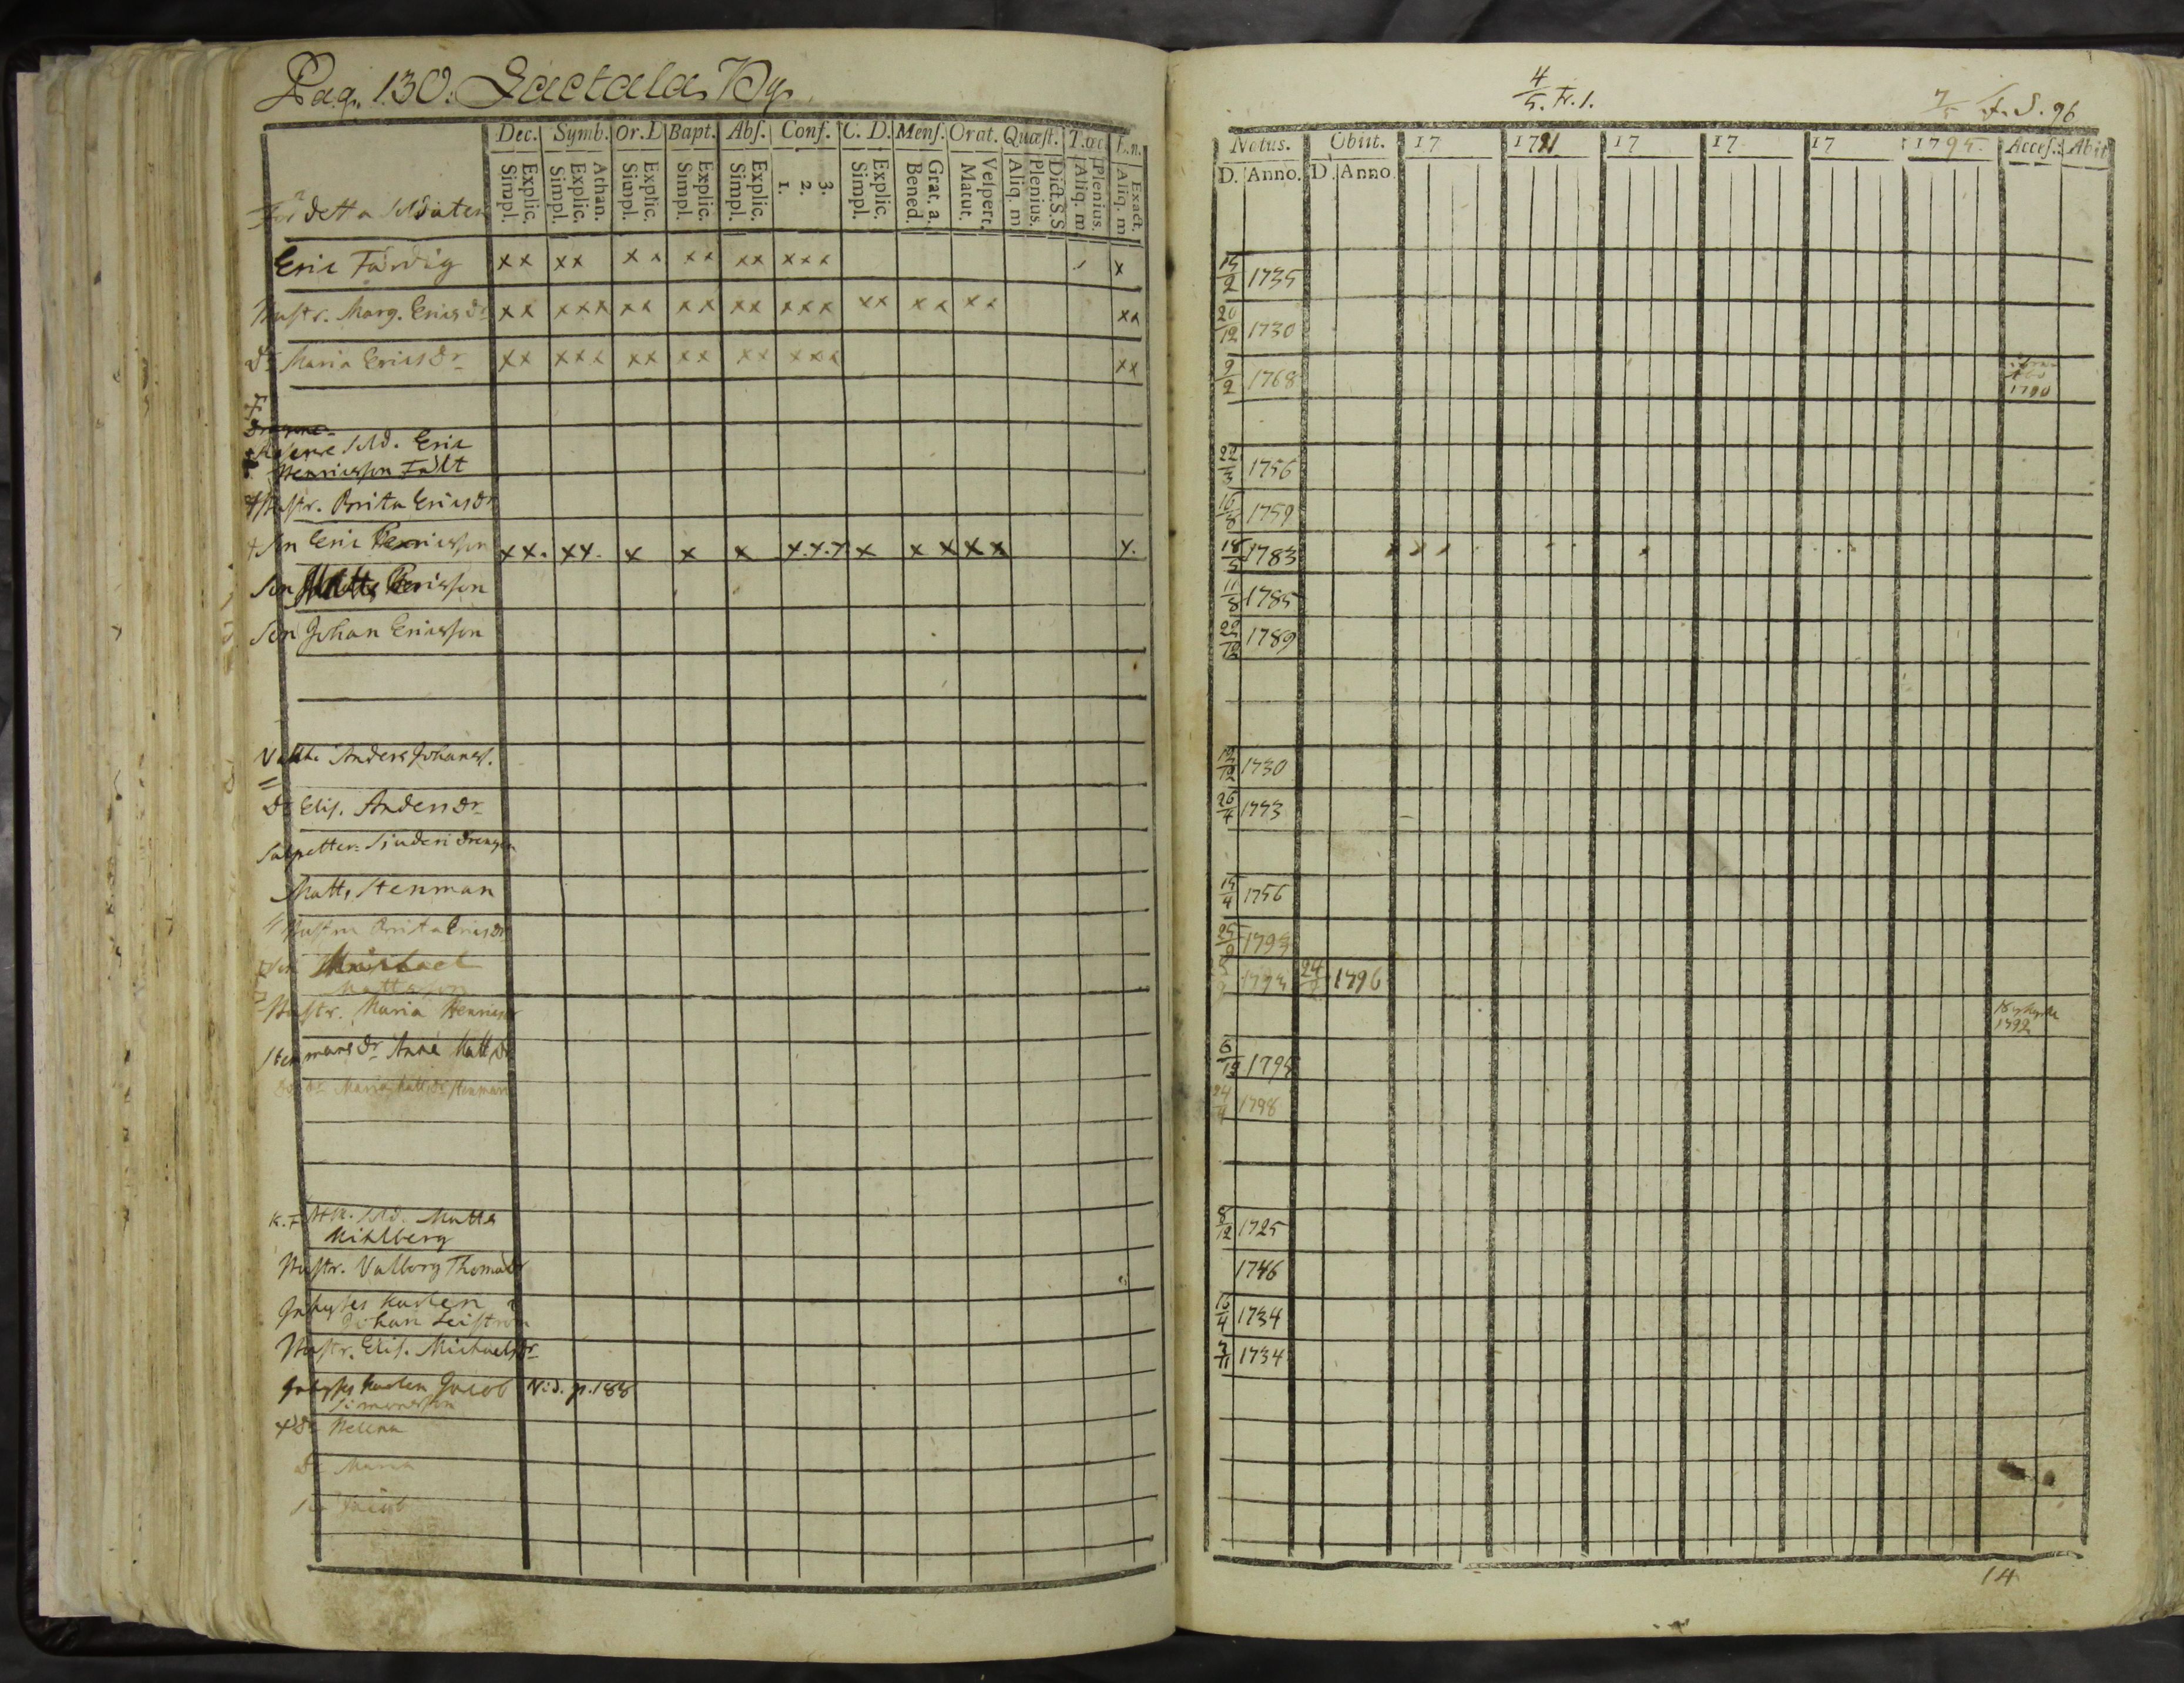 Pag. 130. Lactala By.
Dec. Symb. Or. D Bapt. Abs. Conf. C. D. Mens. Orat. Quæst. T.œc. F.n.
Explic. Simpl. Athan. Explic. Simpl. Explic. Simpl. Explic. Simpl. Explic. Simpl. 3. 2. 1. Explic. Simpl. Grat. a. Bened. Vespert. Matut. Dict.S.S Plenius. Aliq. m Plenius. Aliq. m Exact. Aliq. m
För detta Soldaten
Eric Färdig xx xx xx xx xx xxx x
Hustr. Marg. Ericsdr xx xxx xx xx xx xxx xx xx xx xx
Dr Maria Ericsdr xx xxx xx xx xx xxx xx
Sold. Eric
Henricsson Fält
Hustr. Brita Ericsdr
+ Son Eric Henricsson xx. xx. x x x x.x.x x x x x x x.
Son Matts Ericsson
Son Johan Ericsson
Anders Johanss.
Dr Elis. Andersdr
Salpetter-Siuderi Drengen
Matts Stenman
Hustru Brita Ericsdr
Son Michael
Mattsson
Hustr. Maria Henricsdr
Stenmans Dr Anna Mattsdr
Dr Maria Mattsdr Stenman
Sold. Matts
Mihlberg
Hustr. Valborg Thomasdr
Inhyses Karlen
Johan Leiström
Hustr. Elis. Michaelsdr
Inhyses Karlen Jacob Vid. p. 188
Simonsson
+ Dr Helena
Dr Maria
Son Jacob
4/5. Fr. 1.
7/5 f. S. 96
Natus. Obiit. 17 1791 17 17 17 1794 Acces. Abiit
D. Anno. D. Anno.
15/2 1735
20/12 1730
9/2 1768
1790
22/3 1756
16/8 1759
18/5 1783
11/8 1785
29/12 1789
12/12 1730
26/4 1773
15/4 1756
25/9 1793
1794 24 1796
1792
6/12 1794
24/4 1798
8/12 1725
1746
16/4 1734
7/11 1734
14